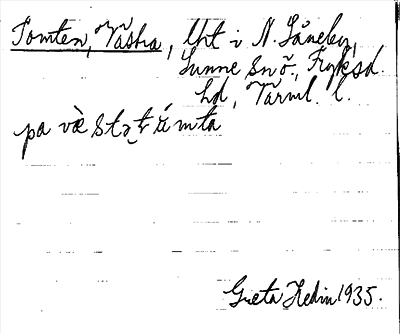 Tomten, Västra, lht i N. Låneby,
Sunne sn ö., Fryksd.
hd, Värml. l.
pa væ̀stət tómta
Greta Hedin 1935.